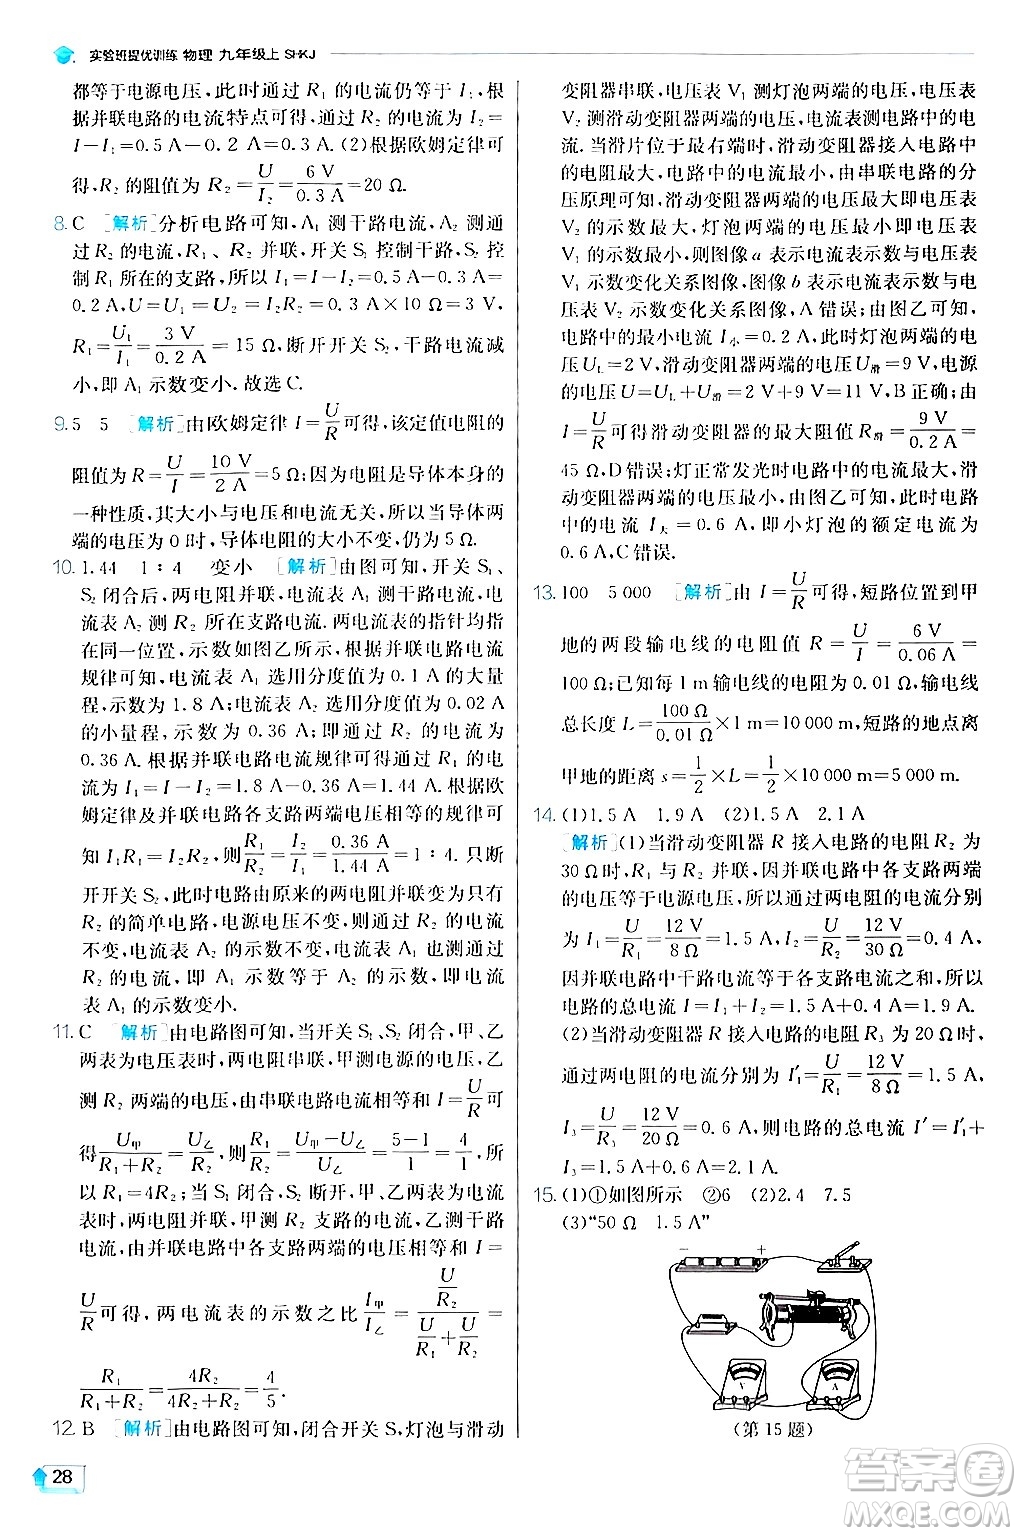 实验班提优训练 物理 九年级上 SHKJ
都等于电源电压,此时通过 R₁ 的电流仍等于 I₁,根
据并联电路的电流特点可知,通过 R₂ 的电流 I₂ =
I－I₁=0.5 A－0.2 A=0.3 A. (2)根据欧姆定律可
得,R₂ 的阻值为 R₂=U/I₂=6 V/0.3 A=20 Ω.
8. C [解析]分析电路可知,A₁ 测干路电流,A₂ 测通
过 R₂ 的电流,R₁、R₂ 并联,开关 S₁ 控制干路,S₂ 控
制 R₁ 所在的支路,所以 I₁=I－I₂=0.5 A－0.3 A=
0.2 A,U=U₁=U₂=I₂R₂=0.3 A×10 Ω=3 V,
R₁=U₁/I₁=3 V/0.2 A=15 Ω,断开开关 S₂,干路电流减
小,即 A₁ 示数变小.故选 C.
9. 5 5 [解析]由欧姆定律 I=U/R可得,该定值电阻的
阻值为 R=U/I=10 V/2 A=5 Ω;因为电阻是导体本身的
一种性质,其大小与电压和电流无关,所以当导体两
端的电压为 0 时,导体电阻的大小不变,仍为 5 Ω.
10. 1.44 1∶4 变小 [解析]由图可知,开关 S₁、
S₂ 闭合后,两电阻并联,电流表 A₁ 测干路电流,电
流表 A₂ 测 R₂ 所在的支路电流.两电流表的指针均指
在同一位置,示数如图乙所示,根据并联电路电流
规律可知,电流表 A₁ 选用分度值为 0.1 A 的大量
程,示数为 1.8 A;电流表 A₂ 选用分度值为 0.02 A
的小量程,示数为 0.36 A,则通过 R₂ 的电流为
0.36 A.根据并联电路电流规律可得通过 R₁ 的电
流为 I₁=I－I₂=1.8 A－0.36 A=1.44 A.根据欧
姆定律及并联电路各支路两端电压相等的规律可
知 I₁R₁=I₂R₂,则R₁/R₂=I₂/I₁=0.36 A/1.44 A=1∶4.只断
开开关 S₂,此时电路由原来的两电阻并联变成只有
R₂ 的简单电路,电源电压不变,通过 R₂ 的电流
不变,电流表 A₂ 的示数不变,电流表 A₁ 也测通过
R₂ 的电流,即 A₁ 示数等于 A₂ 示数,即电流
表 A₁ 的示数变小.
11. C [解析]由电路图可知,当开关 S₁、S₂ 闭合,甲、乙
两表为电压表时,两电阻串联,甲测电源的电压,乙
测 R₂ 两端的电压,由串联电路电流相等和 I=U/R可
得U甲/(R₁+R₂)=U乙/R₂,则R₁/R₂=(U甲－U乙)/U乙=(5－1)/1=4/1,所
以 R₁=4R₂;当 S₁ 闭合、S₂ 断开,甲、乙两表为电流
表时,两电阻并联,甲测 R₂ 支路的电流,乙测干路
电流,由并联电路中各支路两端的电压相等和 I=
U/R可得,两电流表的示数之比I甲/I乙=(U/R₂)/(U/R₁+U/R₂)=
R₁/(R₁+R₂)=4R₂/(4R₂+R₂)=4/5.
12. B [解析]由电路图可知,闭合开关 S,灯泡与滑动
28
变阻器串联,电压表 V₁ 测灯泡两端的电压,电压表
V₂ 测滑动变阻器两端的电压,电流表测电路中的电
流.当滑片位于最右端时,滑动变阻器接入电路中
的电阻最大,电路中的电流最小,由串联电路的分
压原理可知,此时滑动变阻器两端的电压最大即
V₂ 的示数最大,灯泡两端的电压最小即电压表
V₁ 的示数最小,则图像 a 表示电流表示数与电压表
V₁ 示数变化关系图像,图像 b 表示电流表示数与电
压表 V₂ 示数变化关系图像,A 错误;由图乙可知,
电路中的最小电流 I小=0.2 A,此时灯泡两端的电
压 UL=2 V,滑动变阻器两端的电压 U滑=9 V,电源
的电压 U=UL+U滑=2 V+9 V=11 V,B 正确;由
I=U/R可得滑动变阻器的最大阻值 R滑=9 V/0.2 A=
45 Ω,D 错误;灯正常发光时电路中的电流最大,滑
动变阻器两端的电压最小,由图乙可知,此时电路
中的电流 I大=0.6 A,即小灯泡的额定电流为
0.6 A,C 错误.
13. 100 5 000 [解析]由 I=U/R可得,短路位置到甲
地的两段输电线的电阻值 R=U/I=6 V/0.06 A=
100 Ω;已知每 1 m 输电线的电阻为 0.01 Ω,输电线
总长度 L=100 Ω/0.01 Ω×1 m=10 000 m,短路的地点离
甲地的距离 s=1/2×L=1/2×10 000 m=5 000 m.
14. (1)1.5 A 1.9 A (2)1.5 A 2.1 A
[解析](1)当滑动变阻器 R 接入电路的电阻 R₂ 为
30 Ω时,R₁ 与 R₂ 并联,因并联电路中各支路两端
的电压等于电源电压,所以通过两电阻的电流分别
为 I₁=U/R₁=12 V/8 Ω=1.5 A,I₂=U/R₂=12 V/30 Ω=0.4 A,
因并联电路中干路电流等于各支路电流之和,所以
电路的总电流 I=I₁+I₂=1.5 A+0.4 A=1.9 A.
(2)当滑动变阻器 R 接入电路的电阻 R₃ 为 20 Ω时,
通过两电阻的电流分别为 I′₁=U/R₁=12 V/8 Ω=1.5 A,
I₃=U/R₃=12 V/20 Ω=0.6 A,则电路的总电流 I′=I′₁+
I₃=1.5 A+0.6 A=2.1 A.
15. (1)①如图所示 ②6 (2)2.4 7.5
(3)“50 Ω 1.5 A”
－ +
V A
(第 15 题)
答案圈
MXQE.COM